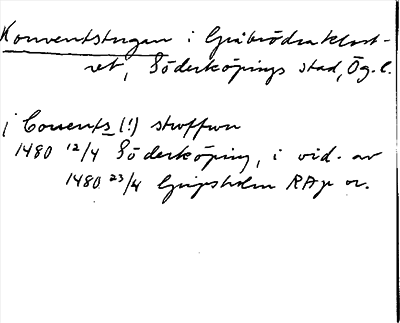 Konventstugan i Gråbrödraklost-
ret, Söderköpings stad, Ög.l.
i Couents (!) stwffwn
1480 12/4 Söderköping, i vid. av
1480 23/4 Gripsholm RAp or.